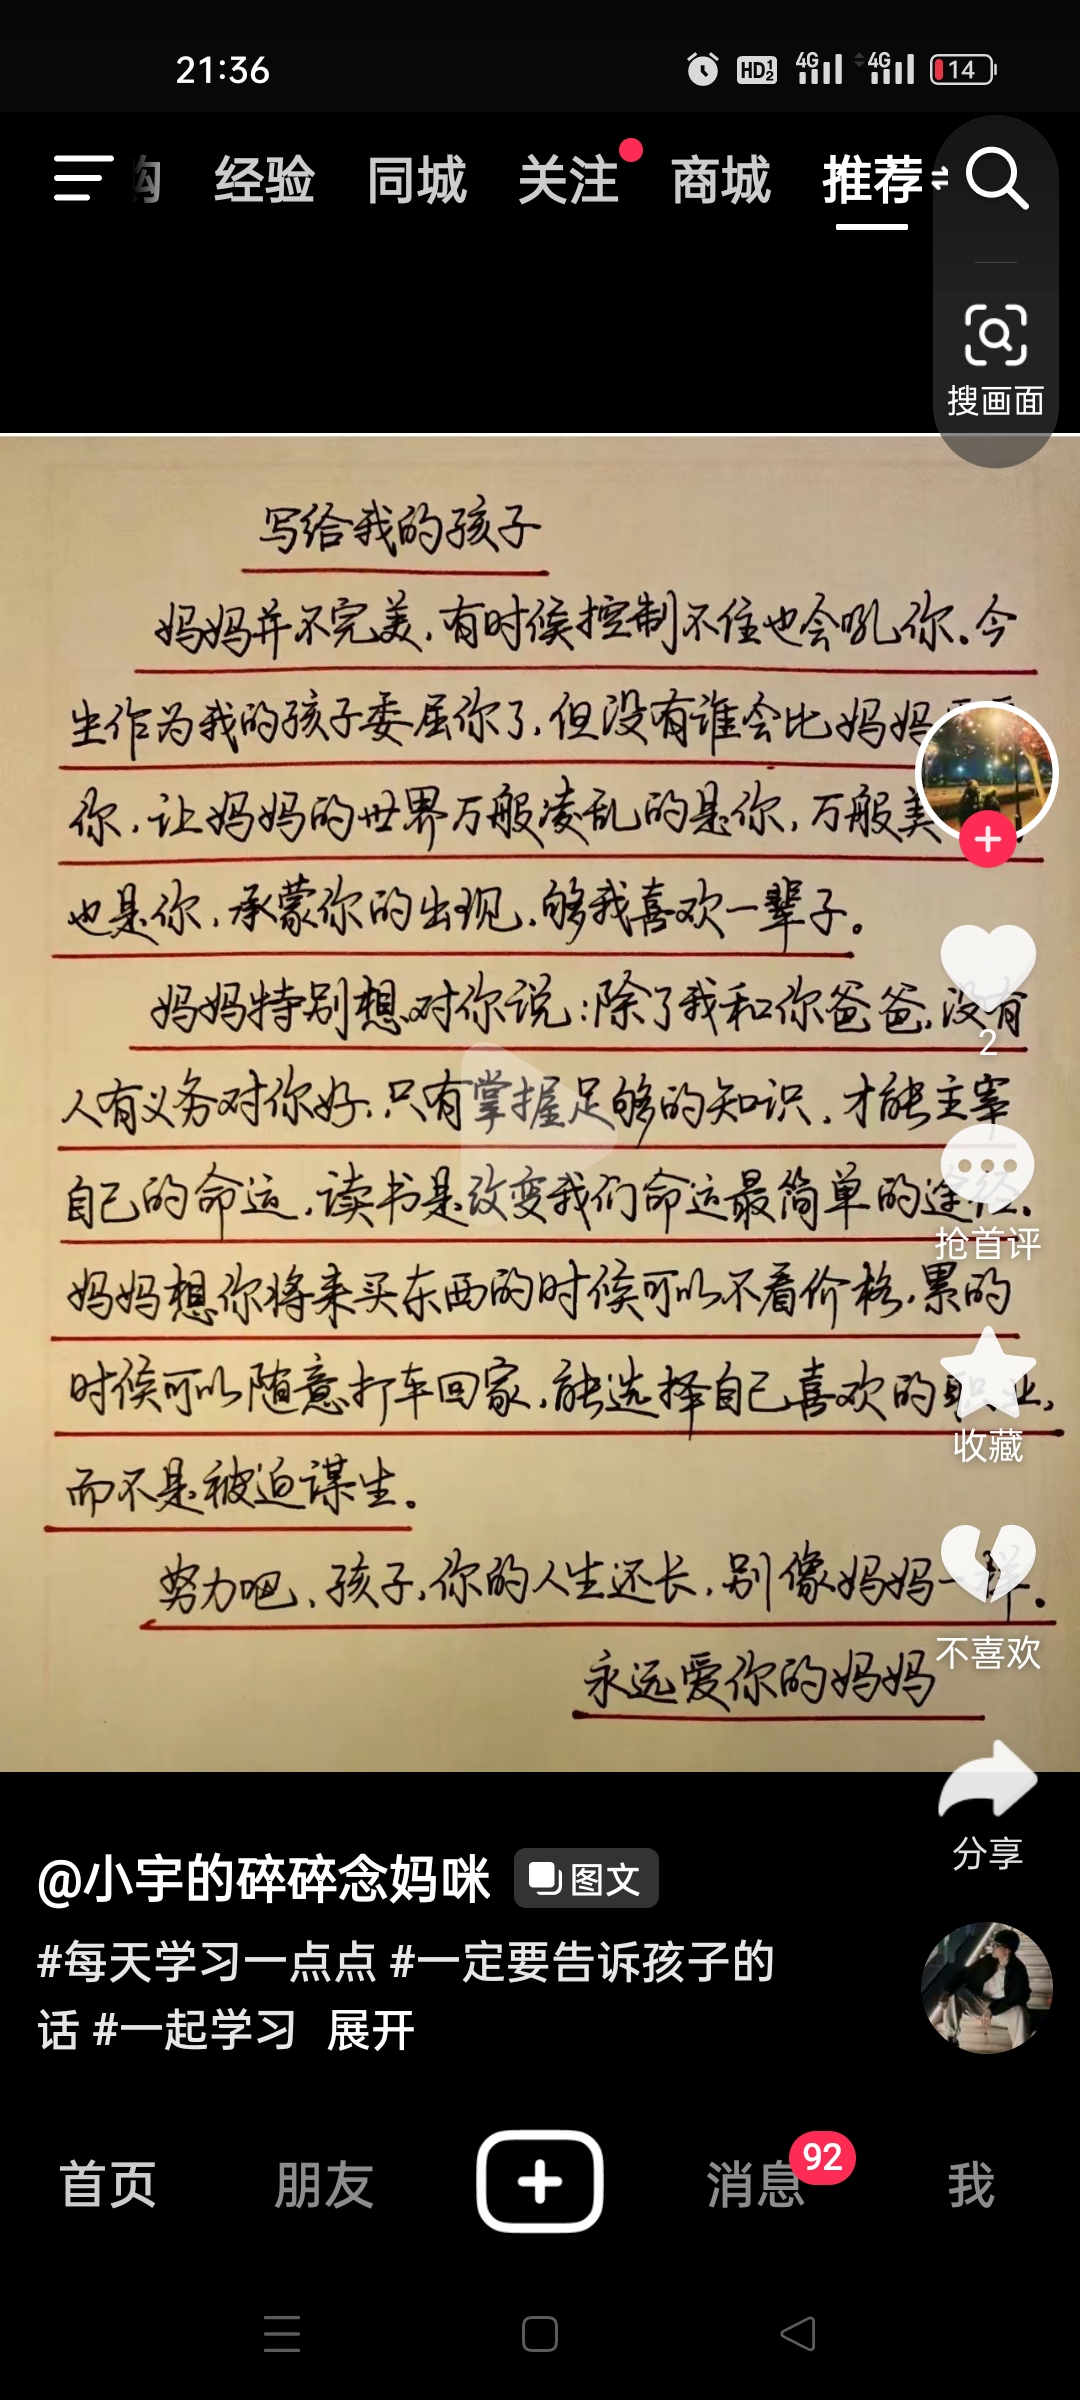 21:36
HD 1 2 4G 4G 14
购 经验 同城 关注 商城 推荐
搜画面
写给我的孩子
妈妈并不完美,有时候控制不住也会吼你。今
生作为我的孩子委屈你了,但没有谁会比妈妈
你,让妈妈的世界万般凌乱的是你,万般美
也是你,承蒙你的出现,够我喜欢一辈子。
妈妈特别想对你说:除了我和你爸爸,没有
2
人有义务对你好,只有掌握足够的知识,才能主宰
自己的命运,读书是改变我们命运最简单的途径.
抢首评
妈妈想你将来买东西的时候可以不看价格,累的
时候可以随意打车回家,能选择自己喜欢的职业,
收藏
而不是被迫谋生。
努力吧,孩子,你的人生还长,别像妈妈一样.
不喜欢
永远爱你的妈妈
分享
@小宇的碎碎念妈咪 图文
#每天学习一点点 #一定要告诉孩子的
话 #一起学习 展开
首页 朋友 消息 92 我